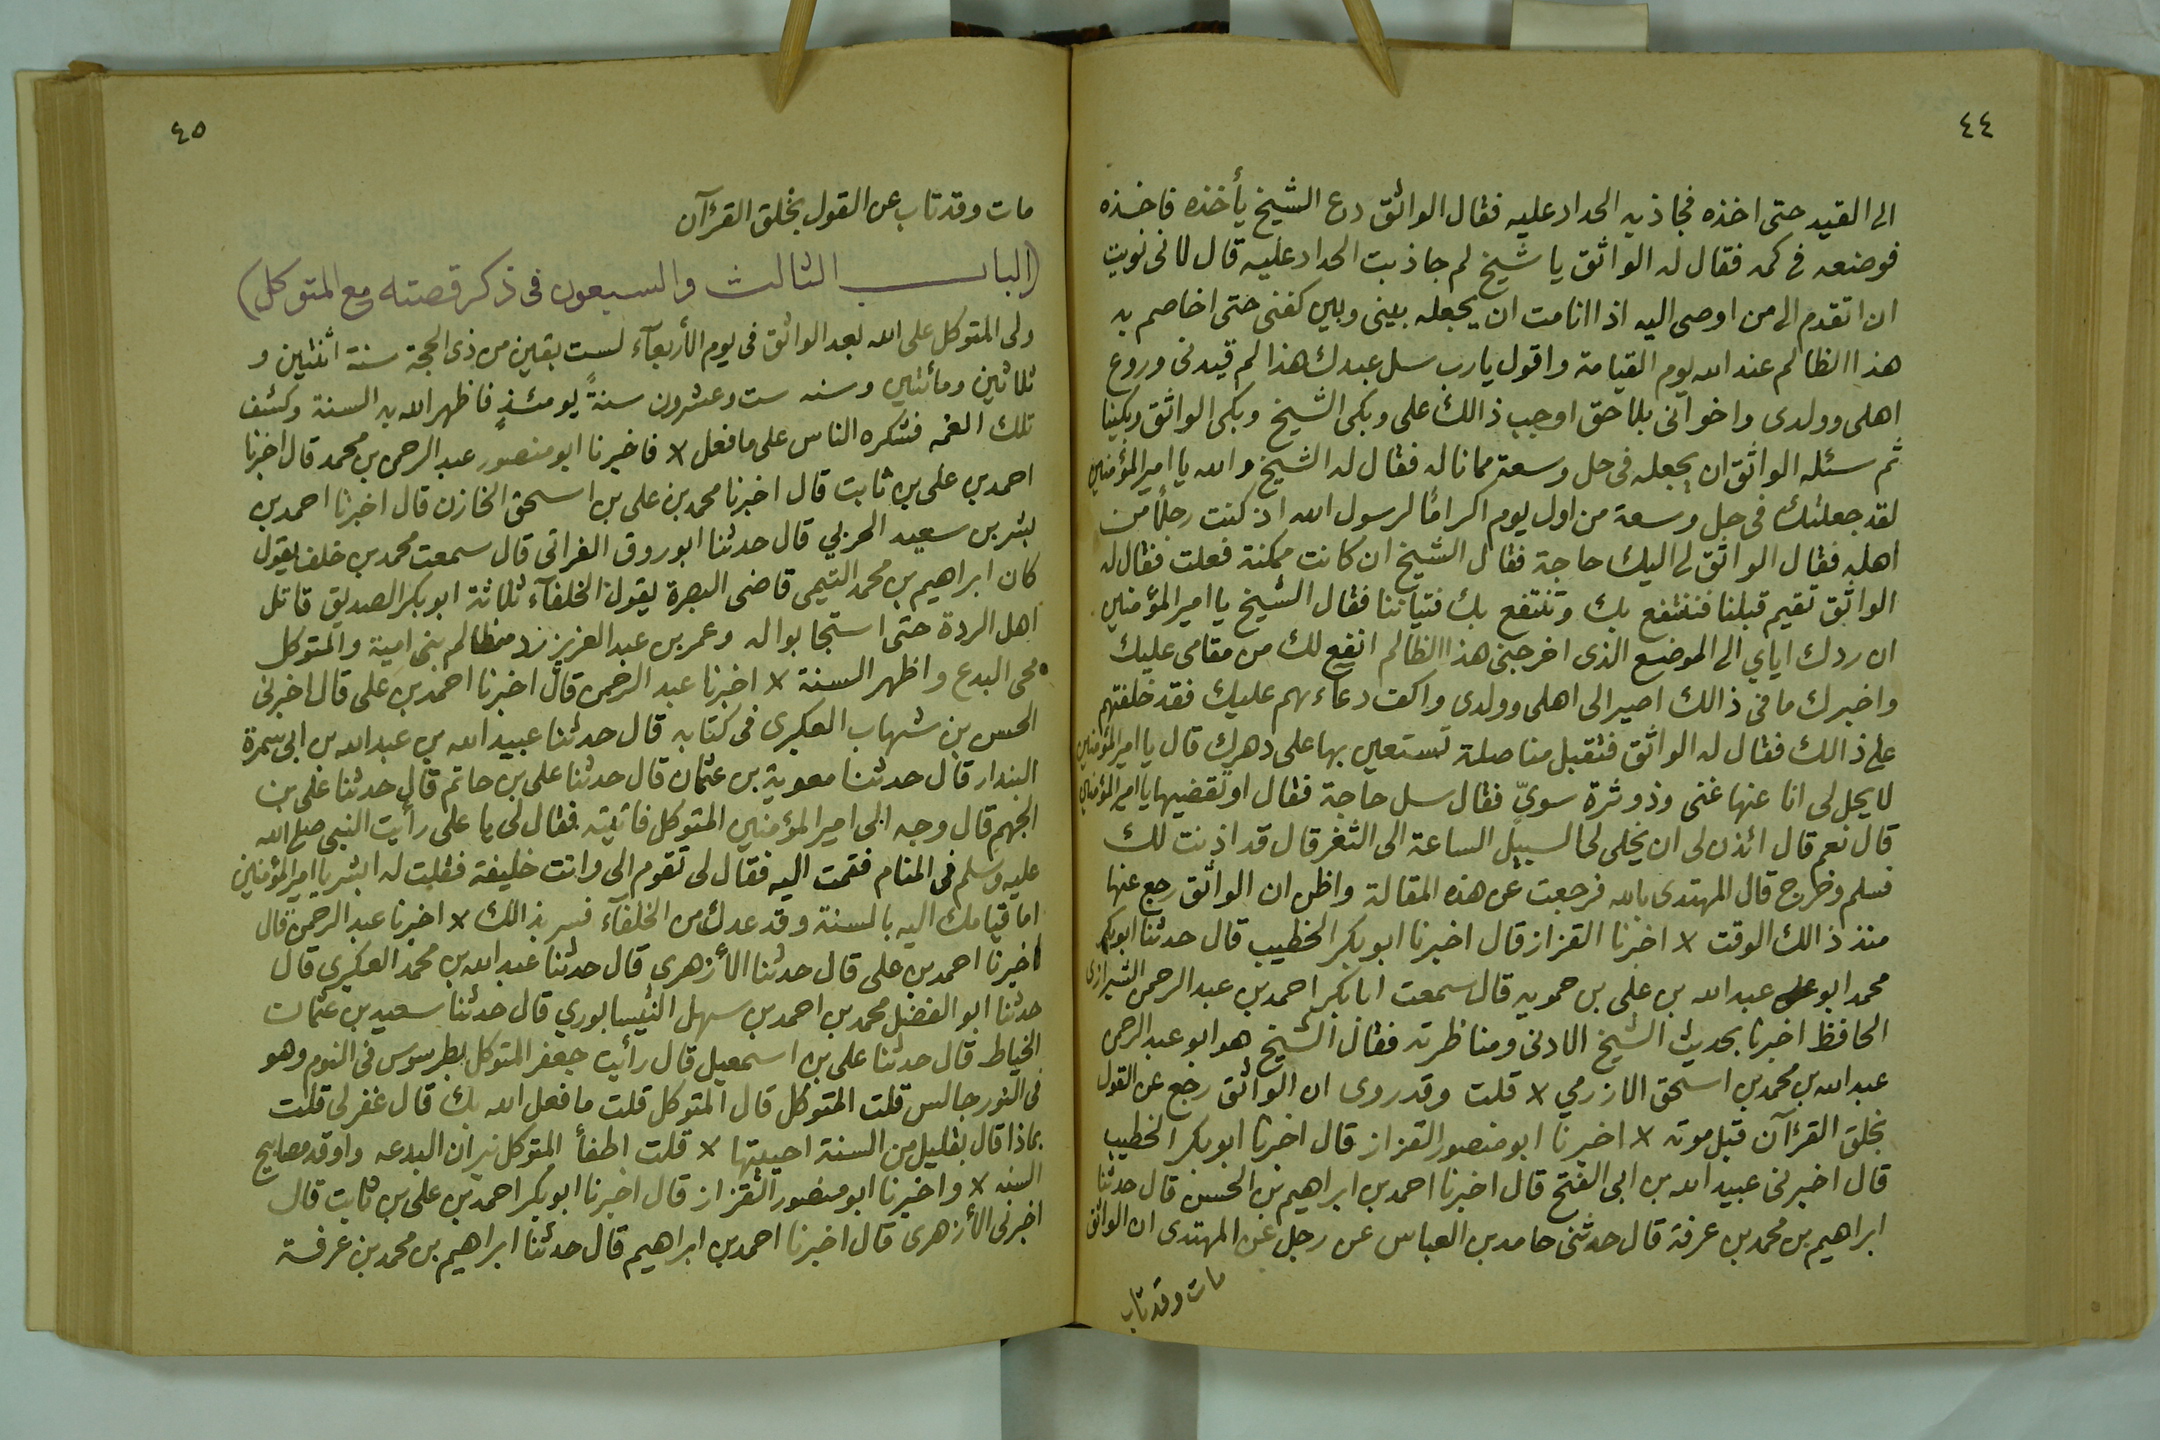 ٤٤
الى القيد حتى اخذه فجاذبه الحداد عليه فقال الواثق دع الشيخ يأخذه فاخذه
فوضعه فى كمه فقال له الواثق يا شيخ لم جاذبت الحداد عليه قال لانى نويت
ان اتقدم الى من اوصى اليه اذا انا مت ان يجعله بينى وبين كفنى حتى اخاصم به
هذا الظالم عند الله يوم القيامة واقول يارب سل عبدك هذا لم قيدنى وروع
اهلى وولدى واخوانى بلا حق اوجب ذالك على وبكى الشيخ وبكى الواثق وبكينا
ثم سئله الواثق ان يجعله فى حل وسعة مما ناله فقال له الشيخ والله يا امير المؤمنين
لقد جعلتك فى حل وسعة من اول يوم اكرامًا لرسول الله اذ كنت رجلًا من
اهله فقال الواثق لى اليك حاجة فقال الشيخ ان كانت ممكنة فعلت فقال له
الواثق تقيم قبلنا فننتفع بك وتنتفع بك فتياننا فقال الشيخ يا امير المؤمنين
ان ردك اياي الى الموضع الذى اخرجنى هذا الظالم انفع لك من مقامى عليك
واخبرك ما فى ذالك اصير الى اهلى وولدى واكف دعاءهم عليك فقد خلفتهم
على ذالك فقال له الواثق فتقبل منا صلة تستعين بها على دهرك قال يا امير المؤمنين
لا يحل لى انا عنها غنى وذو ثرة سويّ فقال سل حاجة فقال او تقضيها يا امير المؤمنين
قال نعم قال ائذن لى ان يخلى لى السبيل الساعة الى الثغر قال قد اذنت لك
فسلم وخرج قال المهتدى بالله فرجعت عن هذه المقالة واظن ان الواثق رجع عنها
منذ ذالك الوقت × اخبرنا القزاز قال اخبرنا ابو بكر الخطيب قال حدثنا ابو بكر
محمد ابو على عبد الله بن على بن حمويه قال سمعت ابا بكر احمد بن عبد الرحمن الشيرازى
الحافظ اخبرنا بحديث الشيخ الادنى ومناظرته فقال الشيخ هو ابو عبد الرحمن
عبد الله بن محمد بن اسحق الازرمي × قلت وقد روى ان الواثق رجع عن القول
بخلق القرآن قبل موته × اخبرنا ابو منصور القزاز قال اخبرنا ابو بكر الخطيب
قال اخبرنى عبيد الله بن ابى الفتح قال اخبرنا احمد بن ابراهيم بن الحسن قال حدثنا
ابراهيم بن محمد بن عرفة قال حدثنى حامد بن العباس عن رجل عن المهتدى ان الواثق
مات وقد تاب
٤٥
مات وقد تاب عن القول بخلق القرآن
(الباب الثالث والسبعون فى ذكر قصته مع المتوكل)
ولى المتوكل على الله بعد الواثق فى يوم الأربعآء لست بقين من ذى الحجة سنة اثنتين و
ثلاثين ومائتين وسنه ست وعشرون سنةً يومئذٍ فاظهر الله به السنة وكشف
تلك الغمه فشكره الناس على ما فعل × فاخبرنا ابو منصور عبد الرحمن بن محمد قال اخبرنا
احمد بن على بن ثابت قال اخبرنا محمد بن على بن اسحق الخازن قال اخبرنا احمد بن
بشر بن سعيد الحربي قال حدثنا ابو روق الفرائى قال سمعت محمد بن خلف يقول
كان ابراهيم بن محمد التيمى قاضى البصرة يقول الخلفآء ثلاثة ابو بكر الصديق قاتل
اهل الردة حتى استجابوا له وعمر بن عبد العزيز رد مظالم بنى امية والمتوكل
محى البدع واظهر السنة × اخبرنا عبد الرحمن قال اخبرنا احمد بن على قال اخبرنى
الحسن بن شهاب العكبرى فى كتابه قال حدثنا عبيد الله بن عبد الله بن ابى سمرة
البندار قال حدثنا معوية بن عثمان قال حدثنا على بن حاتم قال حدثنا على بن
الجهم قال وجه الى امير المؤمنين المتوكل فاتيته فقال لى يا على رأيت النبى صلى الله
عليه وسلم فى المنام فقمت اليه فقال لى تقوم الى وانت خليفة فقلت له ابشر يا امير المؤمنين
اما قيامك اليه بالسنة وقد عدك من الخلفآء فسر بذالك × اخبرنا عبد الرحمن قال
اخبرنا احمد بن على قال حدثنا الأزهرى قال حدثنا عبد الله بن محمد العكبرى قال
حدثنا ابو الفضل محمد بن احمد بن سهل النيسابوري قال حدثنا سعيد بن عثمان
الخياط قال حدثنا على بن اسمعيل قال رأيت جعفر المتوكل بطرسوس فى النوم وهو
فى النور جالس قلت المتوكل قال المتوكل قلت ما فعل الله بك قال غفر لى قلت
بماذا قال بقليل من السنة احييتها × قلت اطفأ المتوكل نيران البدعه واوقد مصابيح
السنه × واخبرنا ابو منصور القزاز قال اخبرنا ابو بكر احمد بن على بن ثابت قال
اخبرنى الأزهرى قال اخبرنا احمد بن ابراهيم قال حدثنا ابراهيم بن محمد بن عرفة